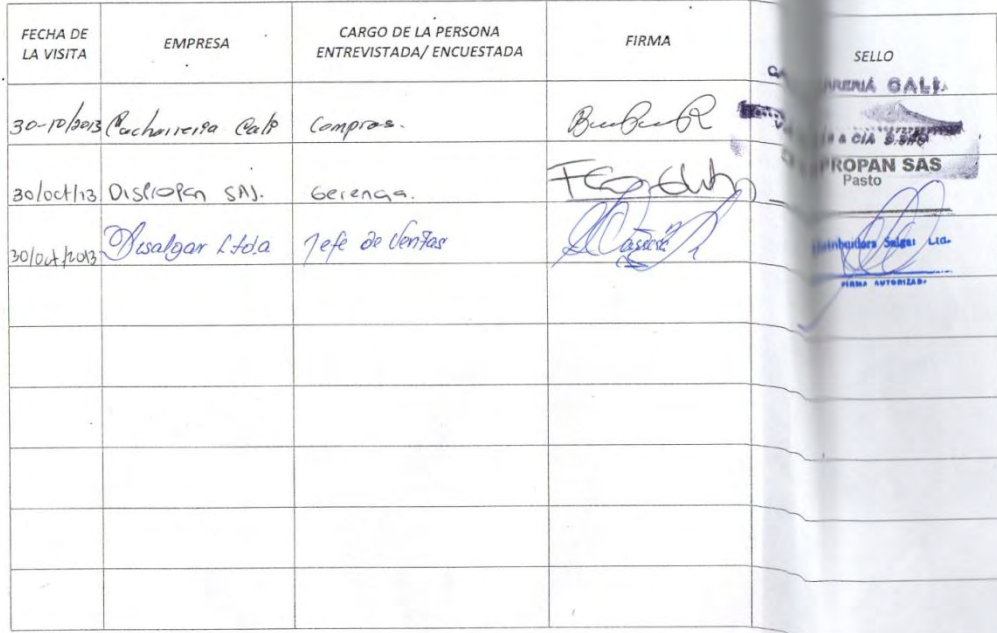 FECHA DE
LA VISITA
EMPRESA
CARGO DE LA PERSONA
ENTREVISTADA/ ENCUESTADA
FIRMA
SELLO
30-10/2013 Cacharreria Cali Compras.
CALI
& CIA
30/oct/13 Dispropan SAS. Gerencia.
PROPAN SAS
Pasto
30/oct/2013 Disalgar Ltda Jefe de Ventas
FIRMA AUTORIZADA